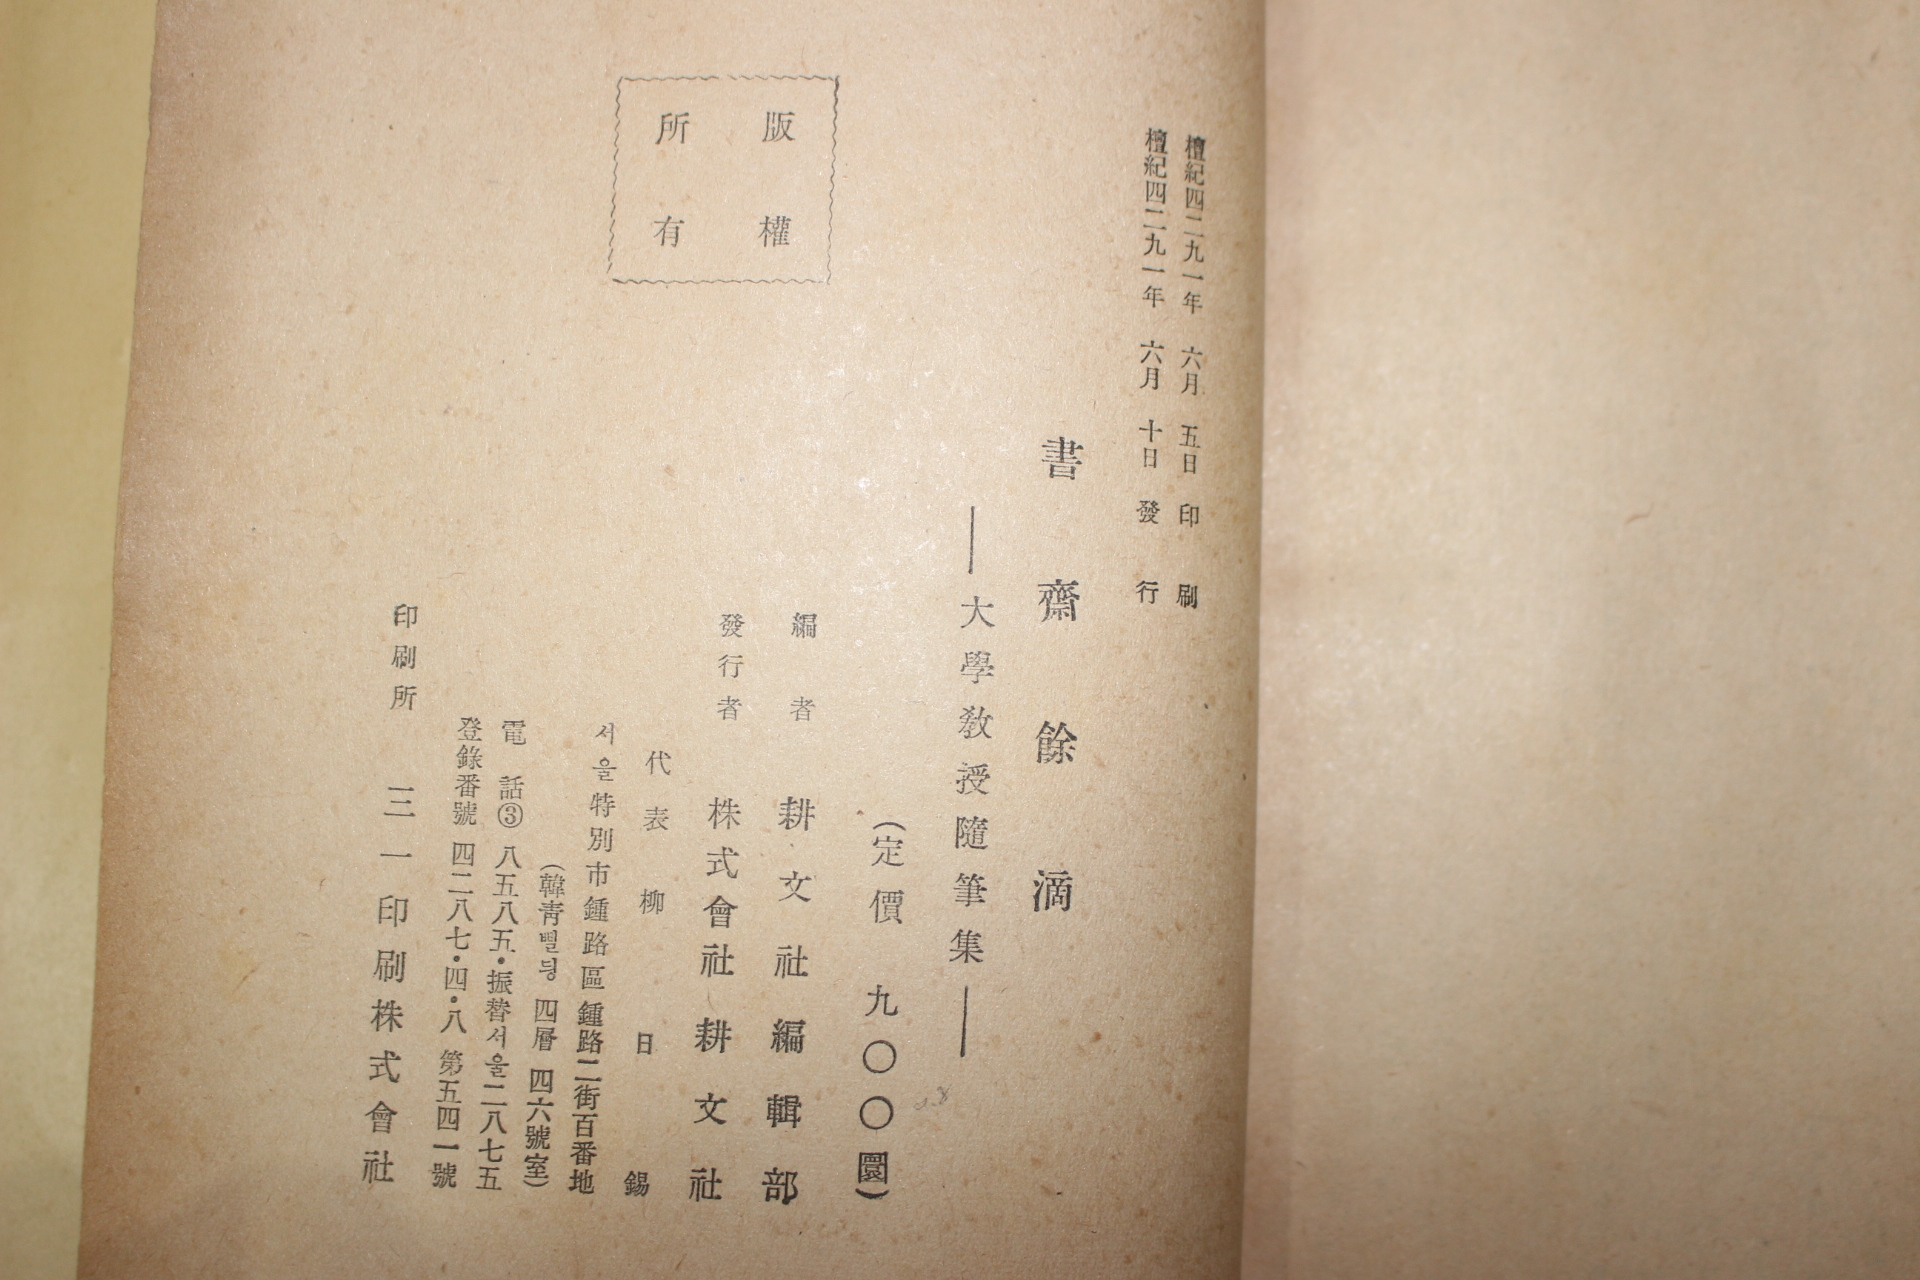 檀紀四二九一年 六月 五日 印刷
檀紀四二九一年 六月 十日 發行
書齋餘滴
―大學敎授隨筆集―
(定價 九〇〇圜)
版權
所有
編者 耕文社編輯部
發行者 株式會社 耕文社
代表 柳日錫
서울特別市鍾路區鍾路二街百番地
(韓靑삘딍 四層 四六號室)
電話③ 八五八五・振替서울二八七五
登錄番號 四二八七・四・八 第五四一號
印刷所 三一印刷株式會社